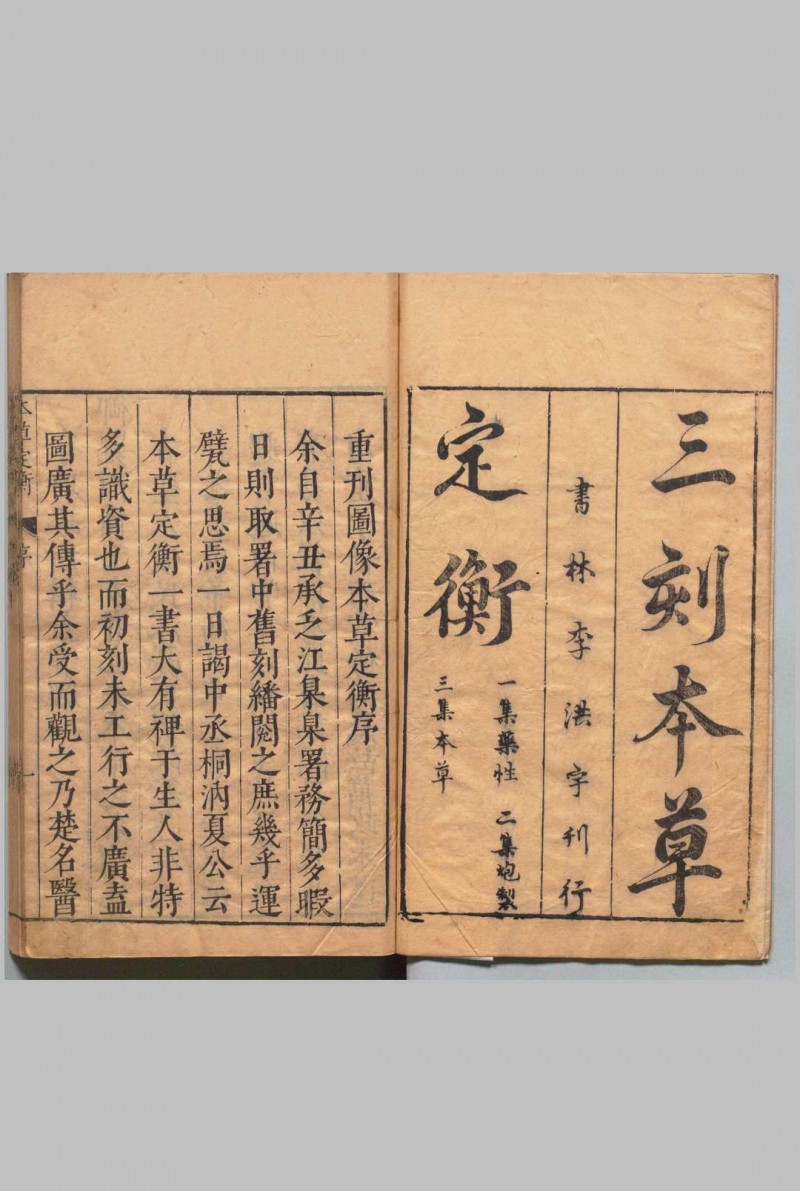 三刻本草
書林李洪宇刊行
定衡
一集藥性 二集炮製
三集本草
重刊圖像本草定衡序
余自辛丑承乏江臬臬署務簡多暇
日則取署中舊刻繙閱之庶幾乎運
甓之思焉一日謁中丞桐汭夏公云
本草定衡一書大有裨于生人非特
多識資也而初刻未工行之不廣盍
圖廣其傳乎余受而觀之乃楚名醫
本草定衡 序 一